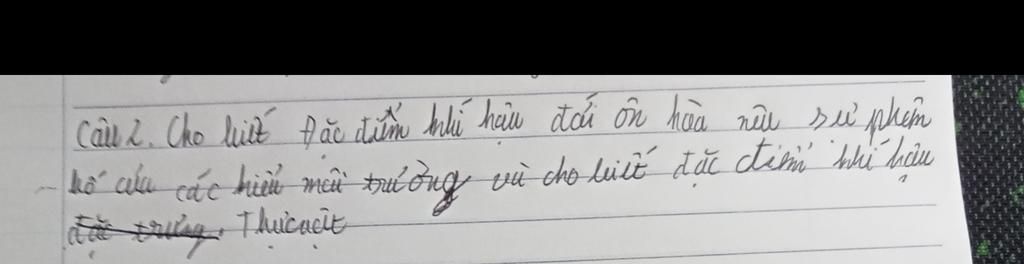 Câu 2. Cho biết Đặc điểm khí hậu đới ôn hòa nêu sự phân
bố của các kiểu môi trường và cho biết đặc điểm khí hậu
đặc trưng. Thực